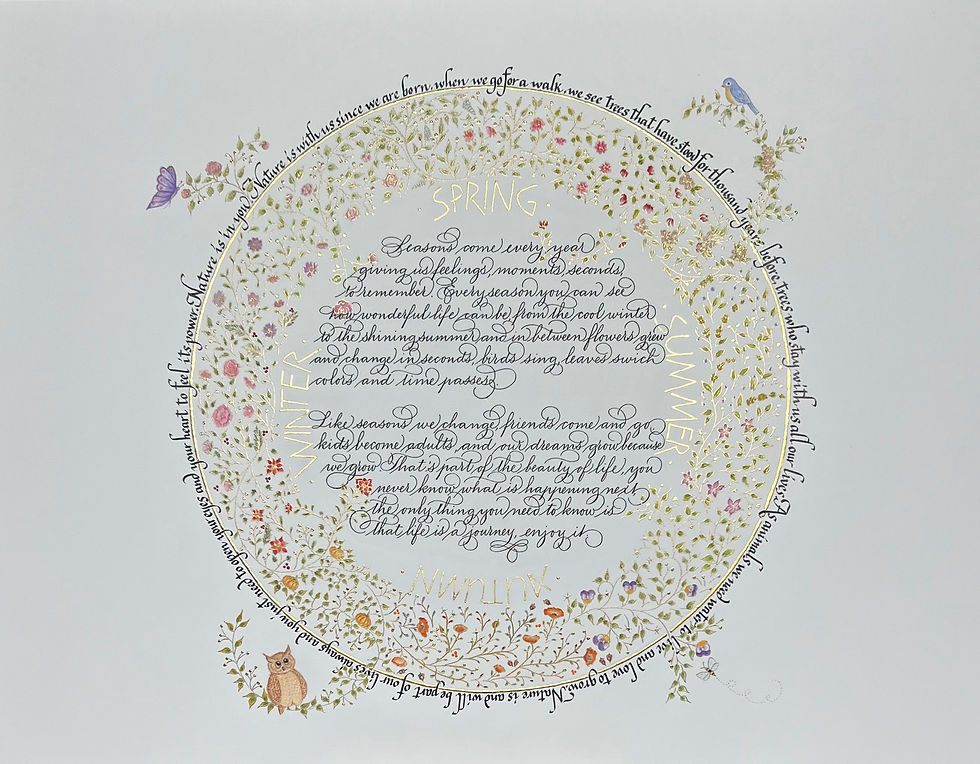 Nature is with us since we are born, when we go for a walk, we see trees that have stood for thousand years before, trees who stay with us all our lives. As animals we need water to live and love to grow. Nature is and will be part of our lives always and you just need to open your eyes and your heart to feel its power. Nature is in you.
SPRING
Seasons come every year
giving us feelings, moments, seconds,
to remember. Every season you can see
how wonderful life can be from the cool winter
to the shining summer and in between flowers grew
and change in seconds, birds sing, leaves swich
colors and time passes.
SUMMER
WINTER
Like seasons we change, friends come and go,
kids become adults, and our dreams grow because
we grow. That's part of the beauty of life you
never know what is happening next,
the only thing you need to know is
that life is a journey, enjoy it.
AUTUMN